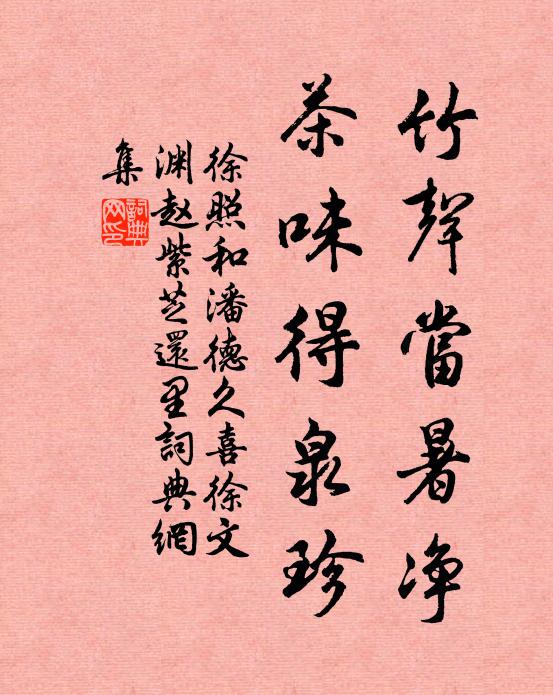 竹聲當暑净
茶味得泉珍
徐照和潘德久喜徐文
渊赵紫芝還里詞典網
集
詞典网印